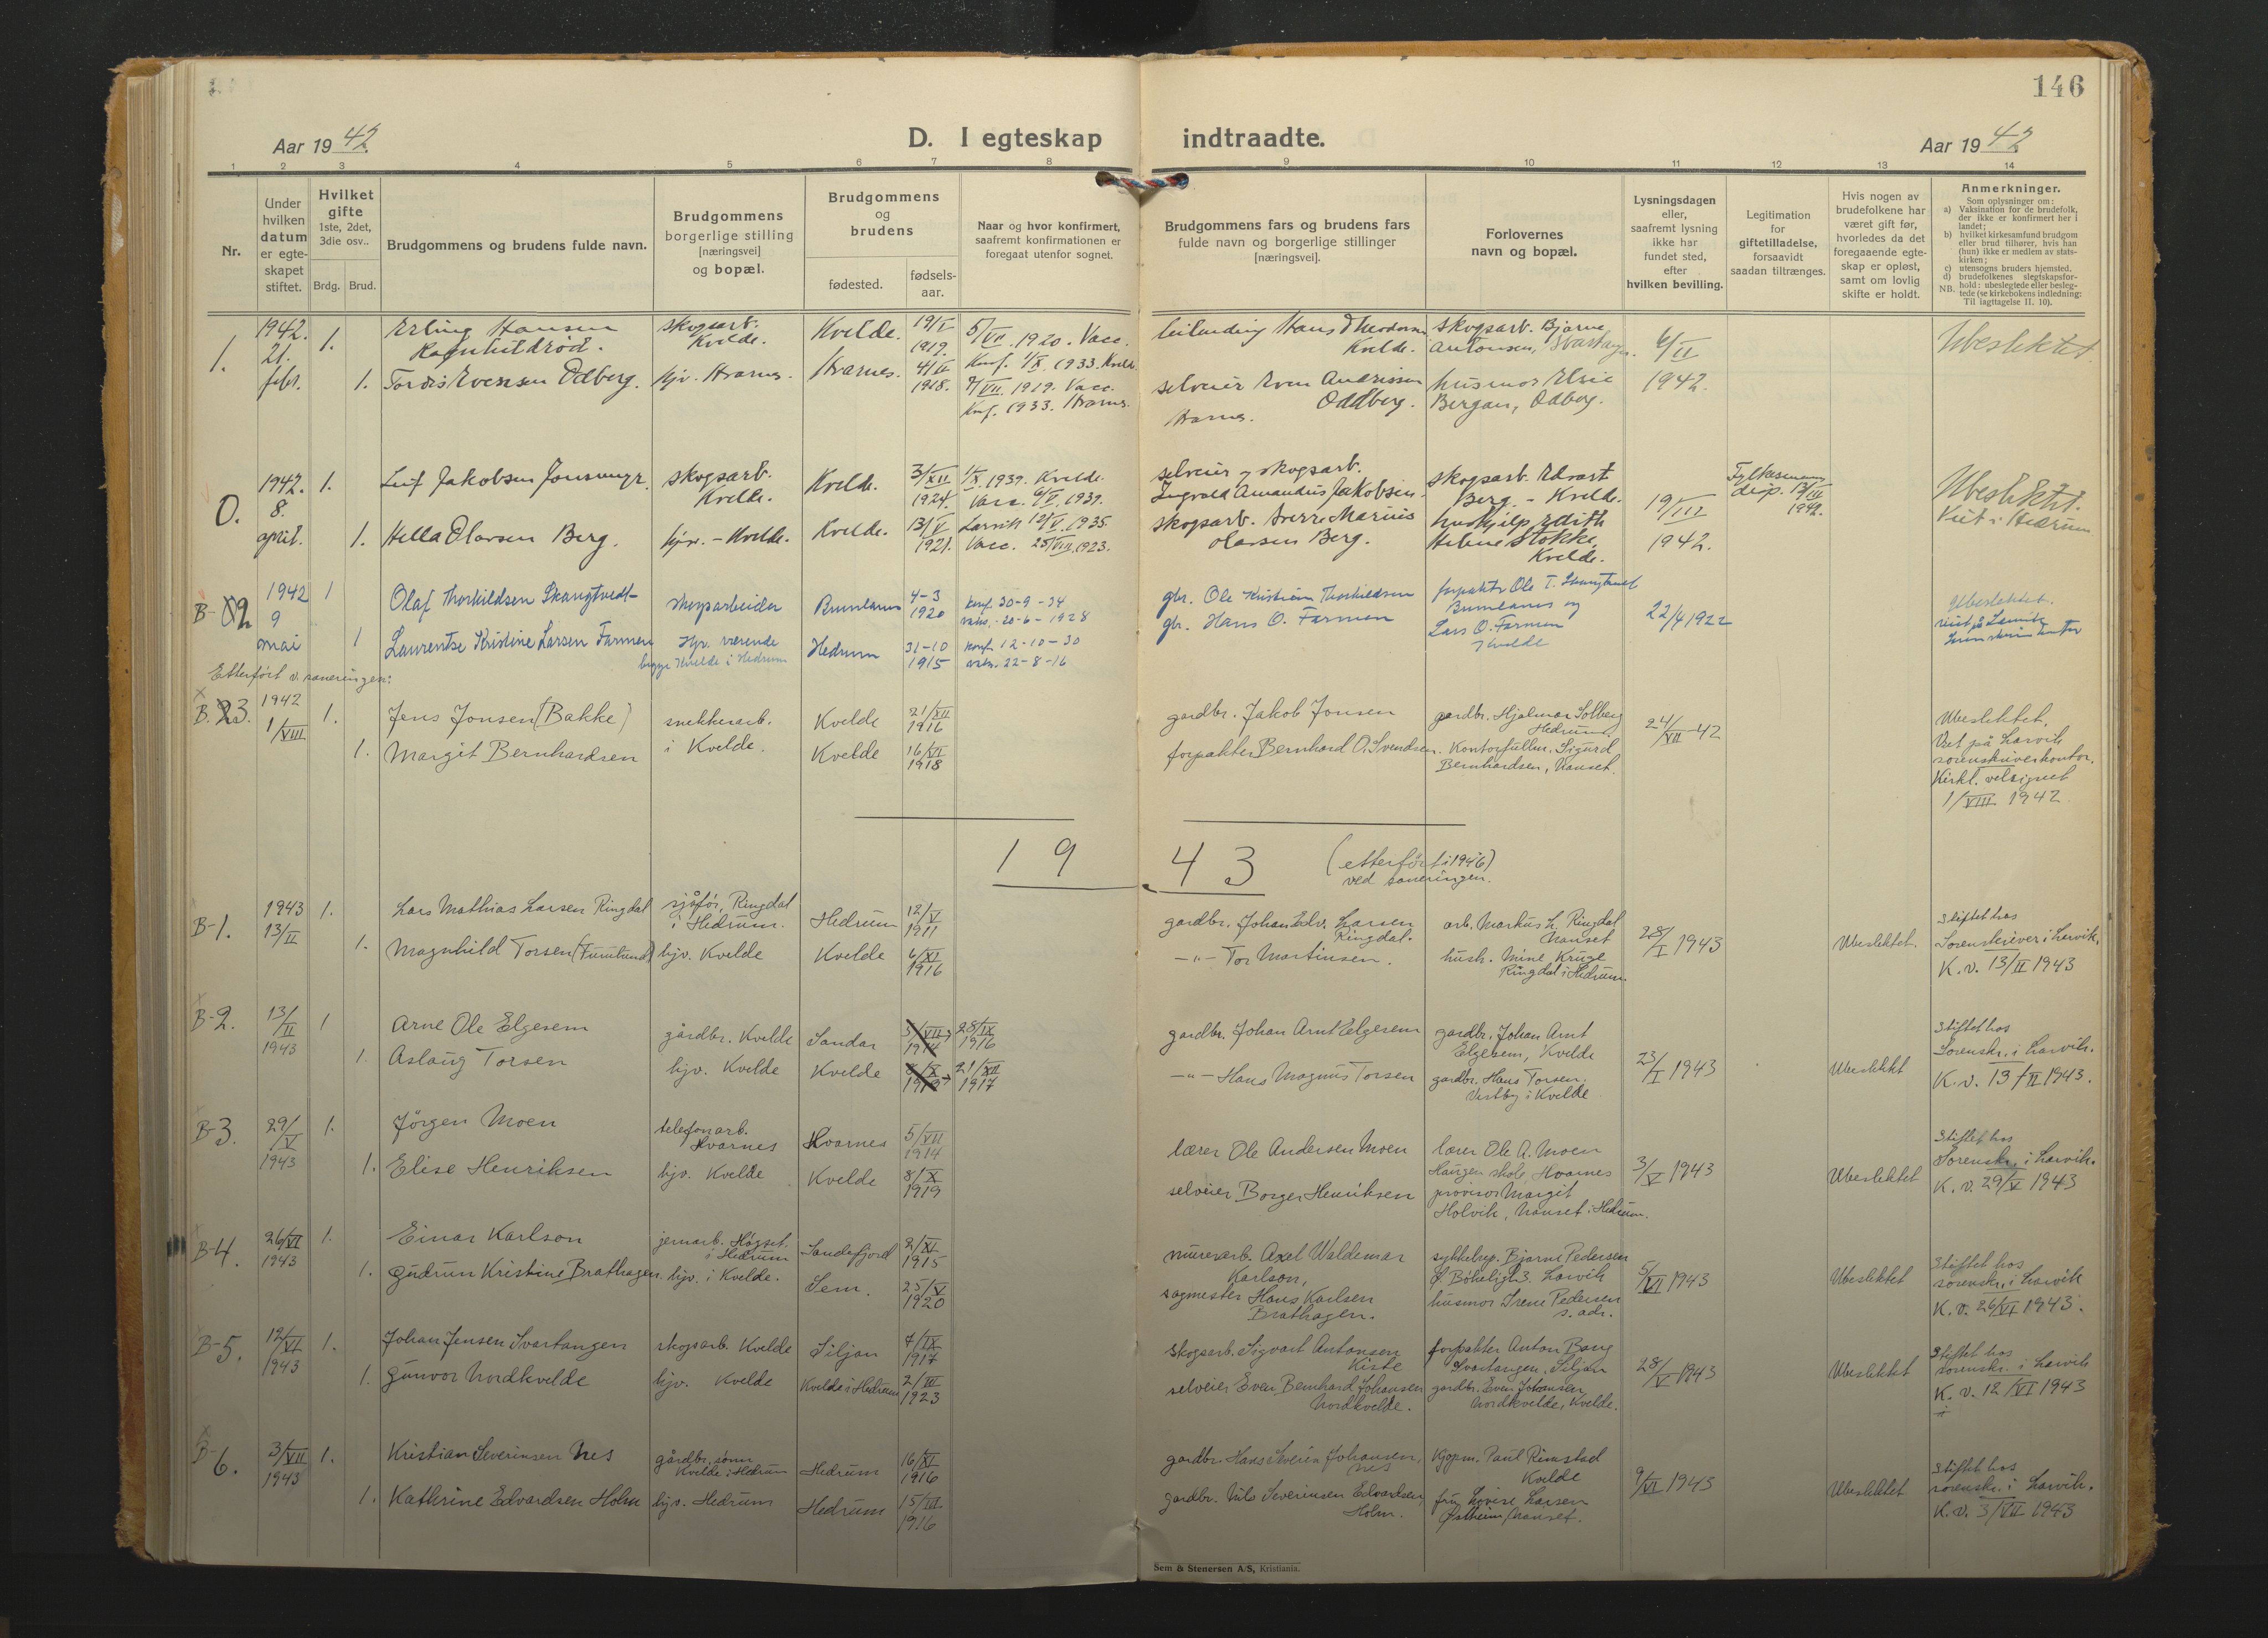 146
Aar 1942.
D. I egteskap indtraadte.
Aar 1942
1 2 3 4 5 6 7 8 9 10 11 12 13 14
Nr.
Under hvilken datum er egte-skapet stiftet.
Hvilket gifte 1ste, 2det, 3die osv..
Brdg. Brud.
Brudgommens og brudens fulde navn.
Brudgommens borgerlige stilling [næringsvei] og bopæl.
Brudgommens og brudens
fødested.
fødsels-aar.
Naar og hvor konfirmert, saafremt konfirmationen er foregaat utenfor sognet.
Brudgommens fars og brudens fars fulde navn og borgerlige stillinger [næringsvei].
Forlovernes navn og bopæl.
Lysningsdagen eller, saafremt lysning ikke har fundet sted, efter hvilken bevilling.
Legitimation for giftetilladelse, forsaavidt saadan tiltrænges.
Hvis nogen av brudefolkene har været gift før, hvorledes da det foregaaende egte-skap er opløst, samt om lovlig skifte er holdt.
Anmerkninger.
Som oplysninger om:
a) Vaksination for de brudefolk, der ikke er konfirmert her i landet;
b) hvilket kirkesamfund brudgom eller brud tilhører, hvis han (hun) ikke er medlem av stats-kirken;
c) utensogns bruders hjemsted.
d) brudefolkenes slegtskapsfor-hold: ubeslegtede eller besleg-
NB. tede (se kirkebokens indledning: Til iagttagelse II. 10).
1. 1942. 21. febr. 1. Erling Hansen skogsarb. Kvelde. Kvelde. 19/I 1919. 5/VII. 1920. Vacc. Konf. 1/X. 1933. Kvelde
Hans Kvelde. skogsarb. Bjarne Antonsen, Svartangen. 6/II 1942. Ubeslektet
1. Tordis Evensen Odberg. hjv. Hvarnes. Hvarnes. 4/IV 1918. 7/VII. 1919. Vacc. Konf. 1933. Hvarnes.
selveier Even Andrissen Oddberg. Hvarnes. husmor Elsie Bergan, Odberg.
0. 1942. 8. april. 1. Leif Jakobsen Jonsmyr. skogsarb. Kvelde. Kvelde. 3/XII 1924. 1/X. 1939. Kvelde. Vacc. 6/V. 1939.
selveier og skogsarb. Ingvald Amandus Jakobsen. skogsarb. Edvart Berg. - Kvelde. 19/III 1942. Fylkesmanns disp. 13/III 1942. Ubeslektet. Viet i Hedrum
1. Hella Olavsen Berg. hjv. - Kvelde. Kvelde. 13/V 1921. Larvik 12/V. 1935. Vacc. 25/VIII 1923.
skogsarb. Sverre Marius Olavsen Berg. hushjelp Edith Helene Stokke, Kvelde.
B-2 1942 9 mai 1 Olaf Thorkildsen Skangtvedt skogsarbeider Brunlanes 4-3 1920 konf. 30-9-34 vaks. 20-6-1928
gbr. Ole Kristian Thorkildsen forpakter Ole T. Skangtvedt Brunlanes og 22/4 1922 Ubeslektet.
1 Laurentse Kristine Larsen Farmen Hjv. værende begge Kvelde i Hedrum Hedrum 31-10 1915 konf. 12-10-30 vaks. 22-8-16
gbr. Hans O. Farmen Lars O. Farmen Kvelde
Etterført v. saneringen:
B. 3. 1942 1/VIII 1. Jens Jonsen (Bakke) snekkerarb. i Kvelde. Kvelde 21/XII 1916
gardbr. Jakob Jonsen gardbr. Hjalmar Solberg Hedrum. 24/VII-42 Ubeslektet. Viet på Larvik sorenskriverkontor. Kirkl. velsignet 1/VIII 1942
1. Margit Bernhardsen Kvelde 16/VI 1918
forpakter Bernhard O. Svendsen. Kontorfullm. Sigurd Bernhardsen, Nanset.
1943 (etterført i 1946) ved saneringen.
B-1. 1943 13/II 1. Lars Mathias Larsen Ringdal sjåfør, Ringdal i Hedrum. Hedrum 12/V 1911
gardbr. Johan Edv. Larsen Ringdal. arb. Markus L. Ringdal Nanset 28/I 1943 Ubeslektet. Stiftet hos Sorenskriver i Larvik. K.v. 13/II 1943
1. Magnhild Torsen (Furulund) hjv. Kvelde Kvelde 6/XI 1916
-"- Tor Martinsen. hush. Mine Kruge Ringdal i Hedrum.
B-2. 13/II 1943 1 Arne Ole Elgesem gårdbr. Kvelde Sandar 5/VII 1914 28/IX 1916
gardbr. Johan Arnt Elgesem gardbr. Johan Arnt Elgesem, Kvelde 23/I 1943 Ubeslektet Stiftet hos Sorenskr. i Larvik. K.v. 13/II 1943.
1. Aslaug Torsen hjv. Kvelde Kvelde 8/X 1919 21/XII 1917
-"- Hans Magnus Torsen gardbr. Hans Torsen. Vestby i Kvelde
B-3. 29/V 1943 1. Jörgen Moen telefonarb. Hvarnes Hvarnes 5/VII 1914
lærer Ole Andersen Moen lærer Ole A. Moen Haugen skole, Hvarnes 3/V 1943 Ubeslektet Stiftet hos Sorenskr. i Larvik. K.v. 29/V 1943
1. Elise Henriksen hjv. Kvelde Kvelde 8/X 1919
selveier Borger Henriksen provisor Margit Holvik, Nanset i Hedrum.
B-4. 26/VI 1943 1. Einar Karlson jernarb. Högset. i Hedrum Sandefjord 2/XI 1915
murerarb. Axel Waldemar Karlson, sykkelrep. Bjarne Pedersen Ø. Bökeligt 3. Larvik 5/VI 1943 Ubeslektet Stiftet hos sorenskr. i Larvik K.v. 26/VI 1943.
1. Gudrun Kristine Brathagen. hjv. i Kvelde. Sem. 25/V 1920
sagmester Hans Karlsen Brathagen. husmor Irene Pedersen s. adr.
B-5. 12/VI 1943 1. Johan Jensen Svartangen skogsarb. Kvelde Siljan 7/IX 1917
skogsarb. Sigvart Antonsen Kiste forpakter Anton Bang Svartangen, Siljan 28/V 1943 Ubeslektet Stiftet hos sorenskr. i Larvik K.v. 12/VI 1943
1. Gunvor Nordkvelde hjv. Kvelde Kvelde i Hedrum 2/III 1923
selveier Even Bernhard Johansen Nordkvelde. gardbr. Even Johansen Nordkvelde, Kvelde.
B-6. 3/VII 1943 1. Kristian Severinsen Nes gårdbr. sønn Kvelde i Hedrum Hedrum 16/XI 1916
gardbr. Hans Severin Johansen, Nes Kjøpm. Paul Rimstad Kvelde 9/VI 1943 Ubeslektet Stiftet hos sorenskr. i Larvik. K.v. 3/VII 1943
1. Kathrine Edvardsen Holm hjv. Hedrum Hedrum 15/III 1916
gardbr. Nils Severinsen Edvardsen, Holm. fru Lovise Larsen Østheim, Nanset.
Sem & Stenersen A/S, Kristiania.